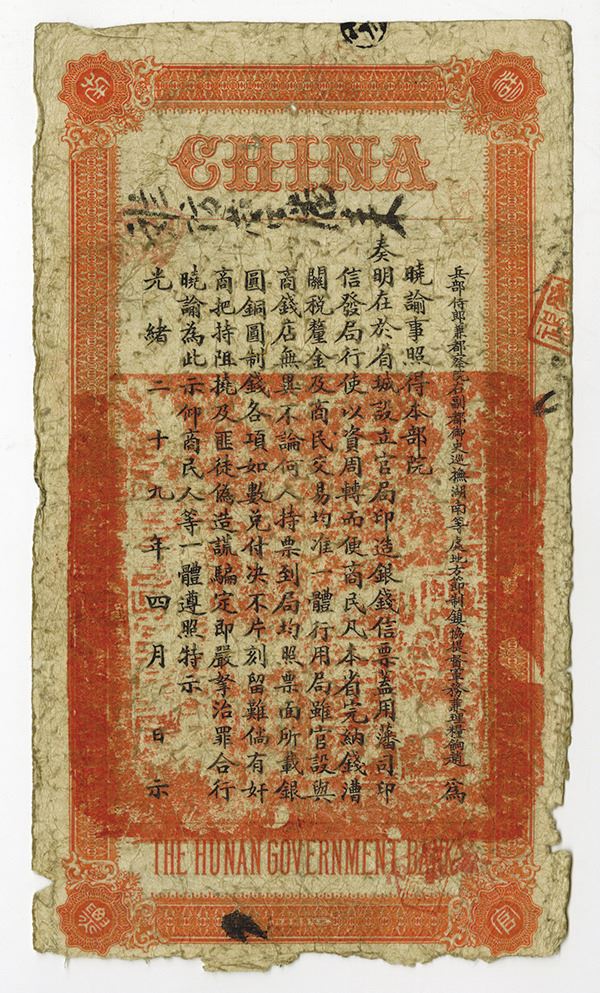 CHINA
兵部侍郎兼都察院右副都御史巡撫湖南等處地方節制鎮協提督軍務兼理糧餉趙 為
曉諭事照得本部院
奏明在於省城設立官局印造銀錢信票蓋用藩司印
信發局行使以資周轉而便商民凡本省完納錢漕
關稅釐金及商民交易均准一體行用局雖官設與
商錢店無異不論何人持票到局均照票面所載銀
圓銅圓制錢各項如數兌付決不片刻留難倘有奸
商把持阻撓及匪徒偽造謊騙定即嚴拏治罪合行
曉諭為此示仰商民人等一體遵照特示
光緒二十九年四月 日示
THE HUNAN GOVERNMENT BANK
官